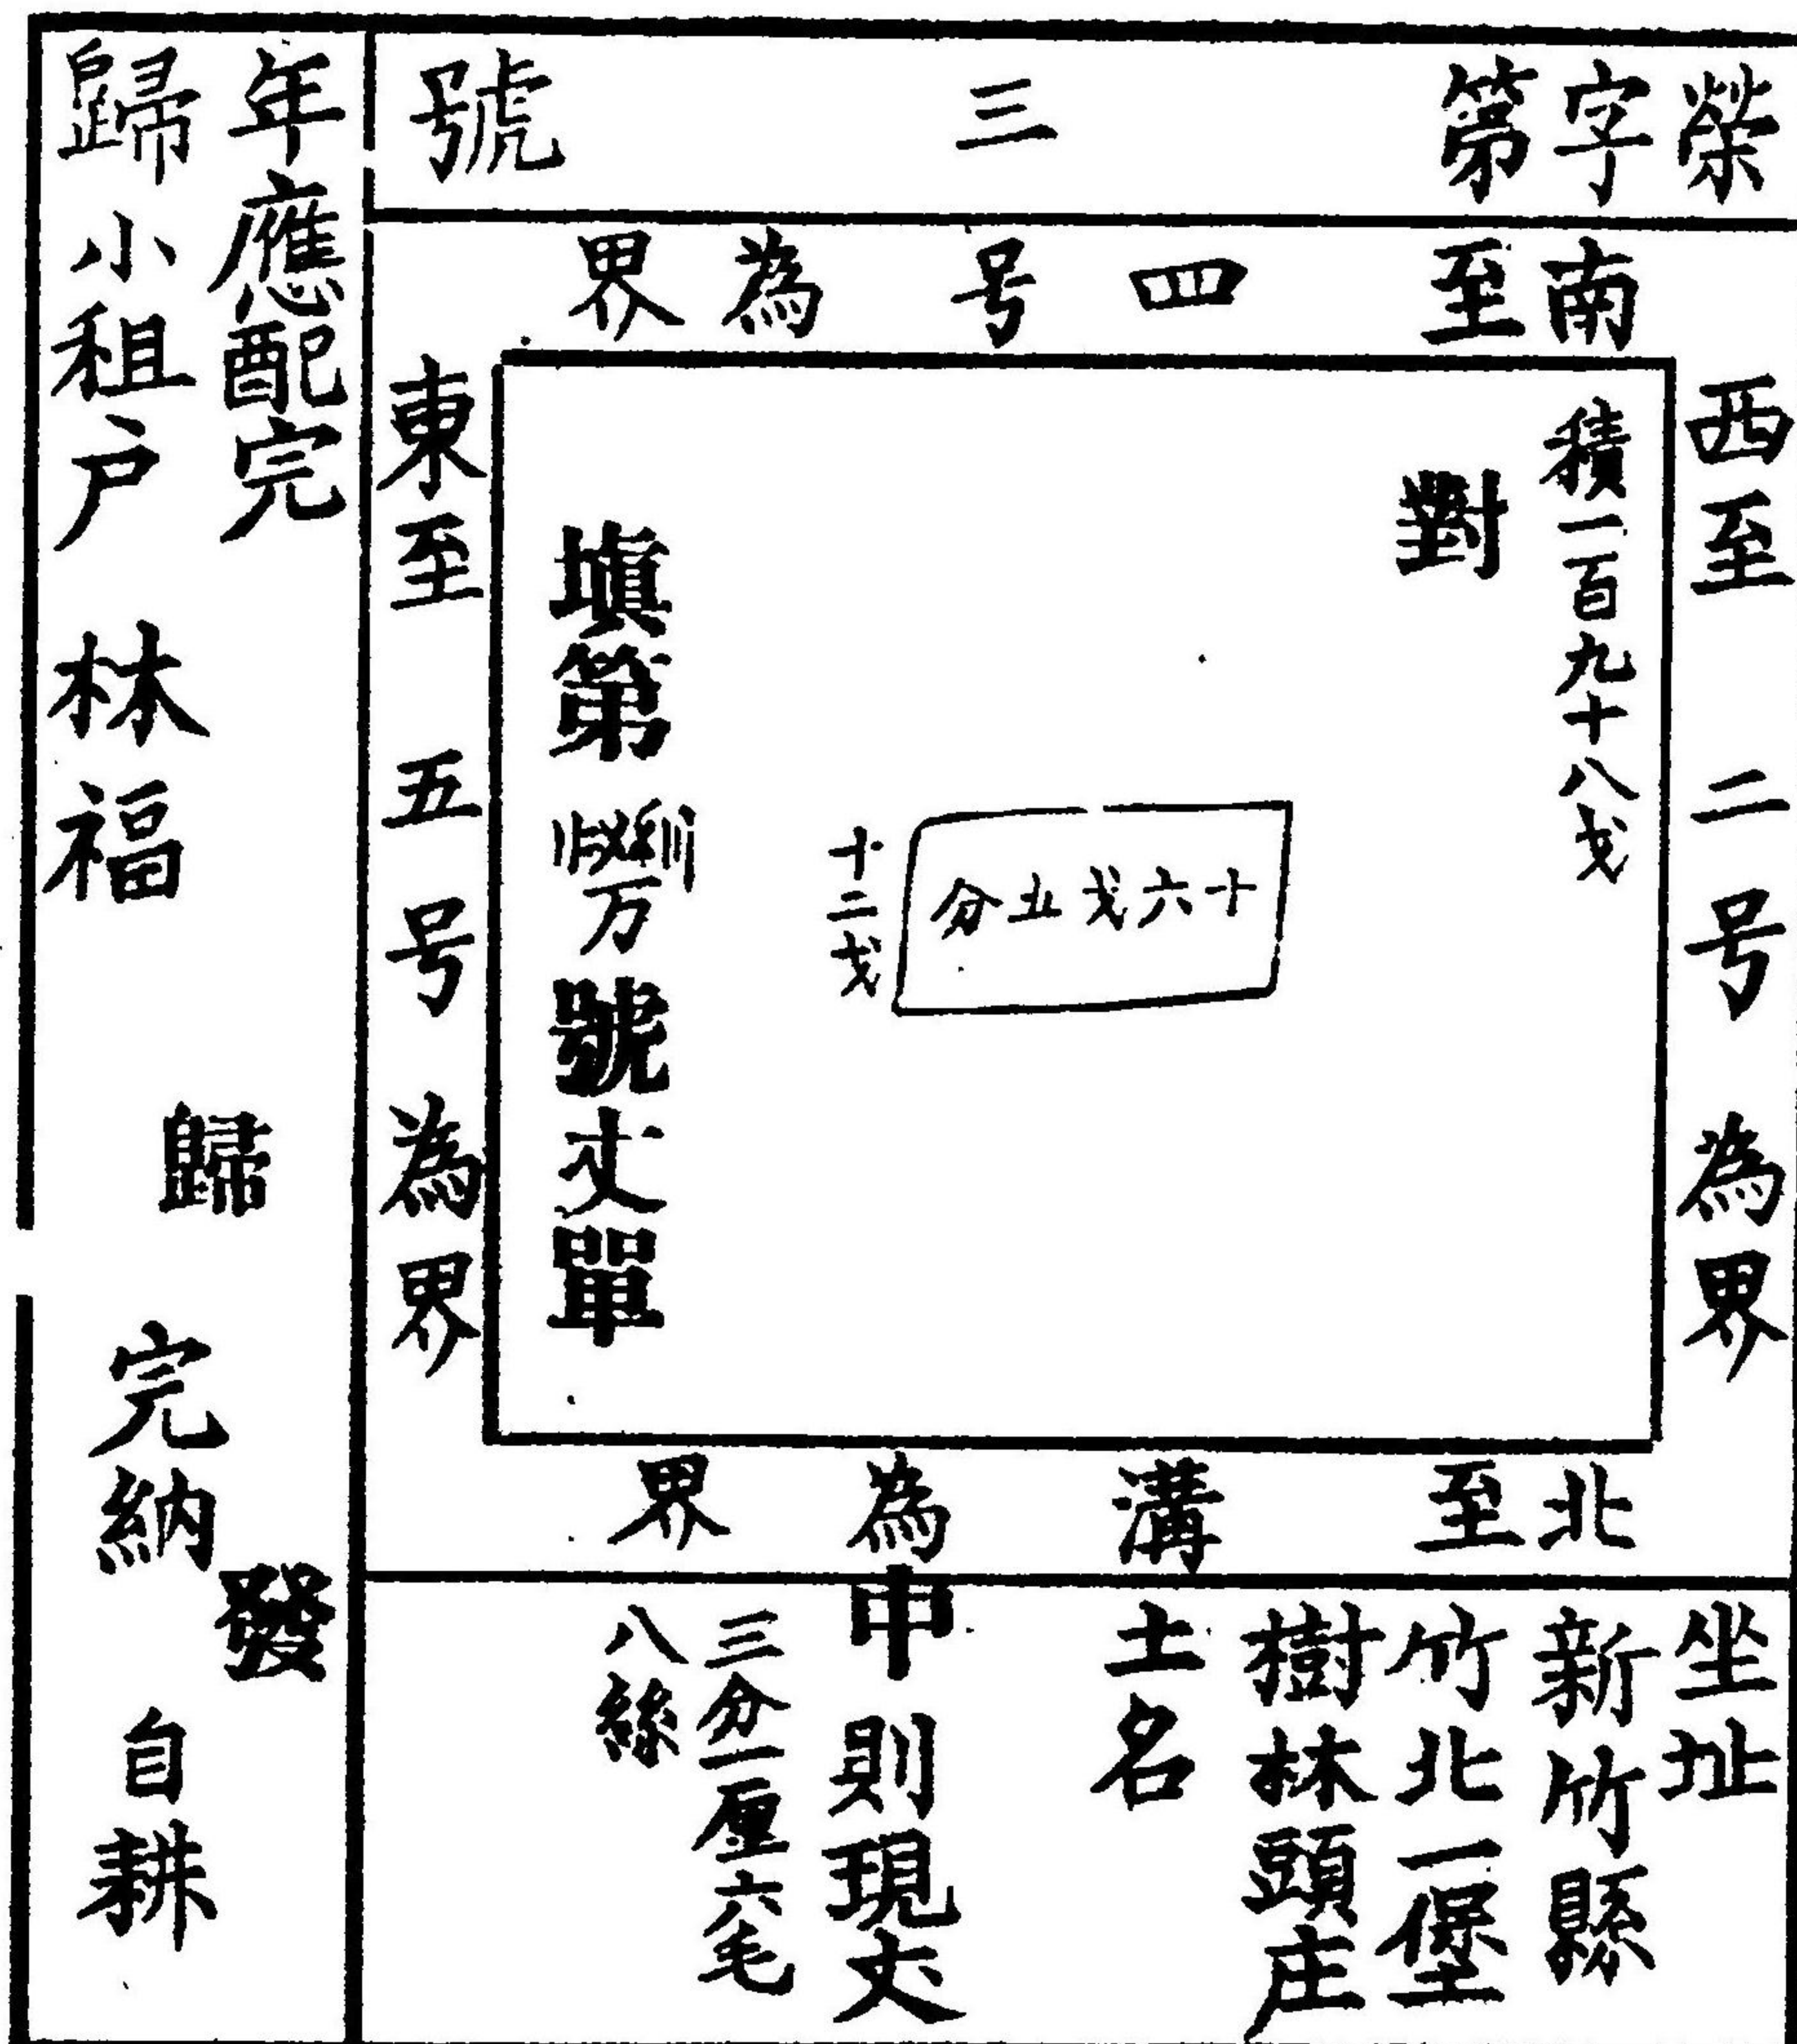 榮字第三號
南至四号為界
西至二号為界
積一百九十八戈
對
十六戈五分
十二戈
填第
号
號丈單
東至五号為界
北至溝為界
坐址
新竹縣
竹北一堡
樹林頭庄
土名
中則現丈
三分一厘六毛
八絲
年應配完
歸
發
歸小租戶林福完納自耕